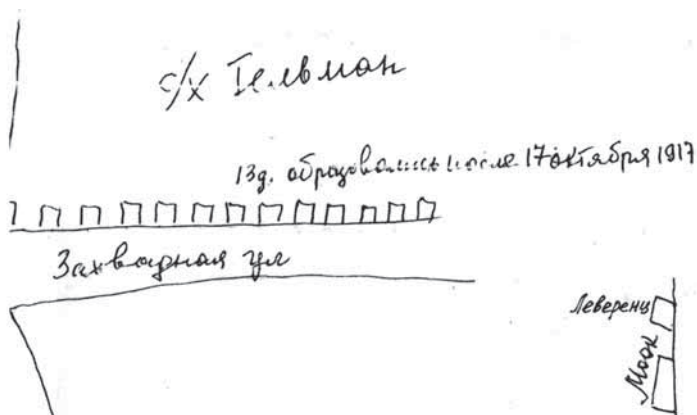 с/х Тельман
13д. образовались после 17 октября 1917
ул
Леверенц
Моок